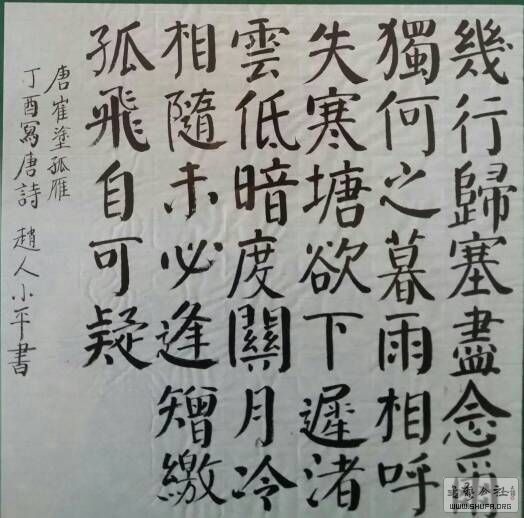 幾行歸塞盡念爾
獨何之暮雨相呼
失寒塘欲下遲渚
雲低暗度關月冷
相隨未必逢矰繳
孤飛自可疑
唐崔塗孤雁
丁酉寫唐詩 趙人小平書
WWW.SHUFA.ORG